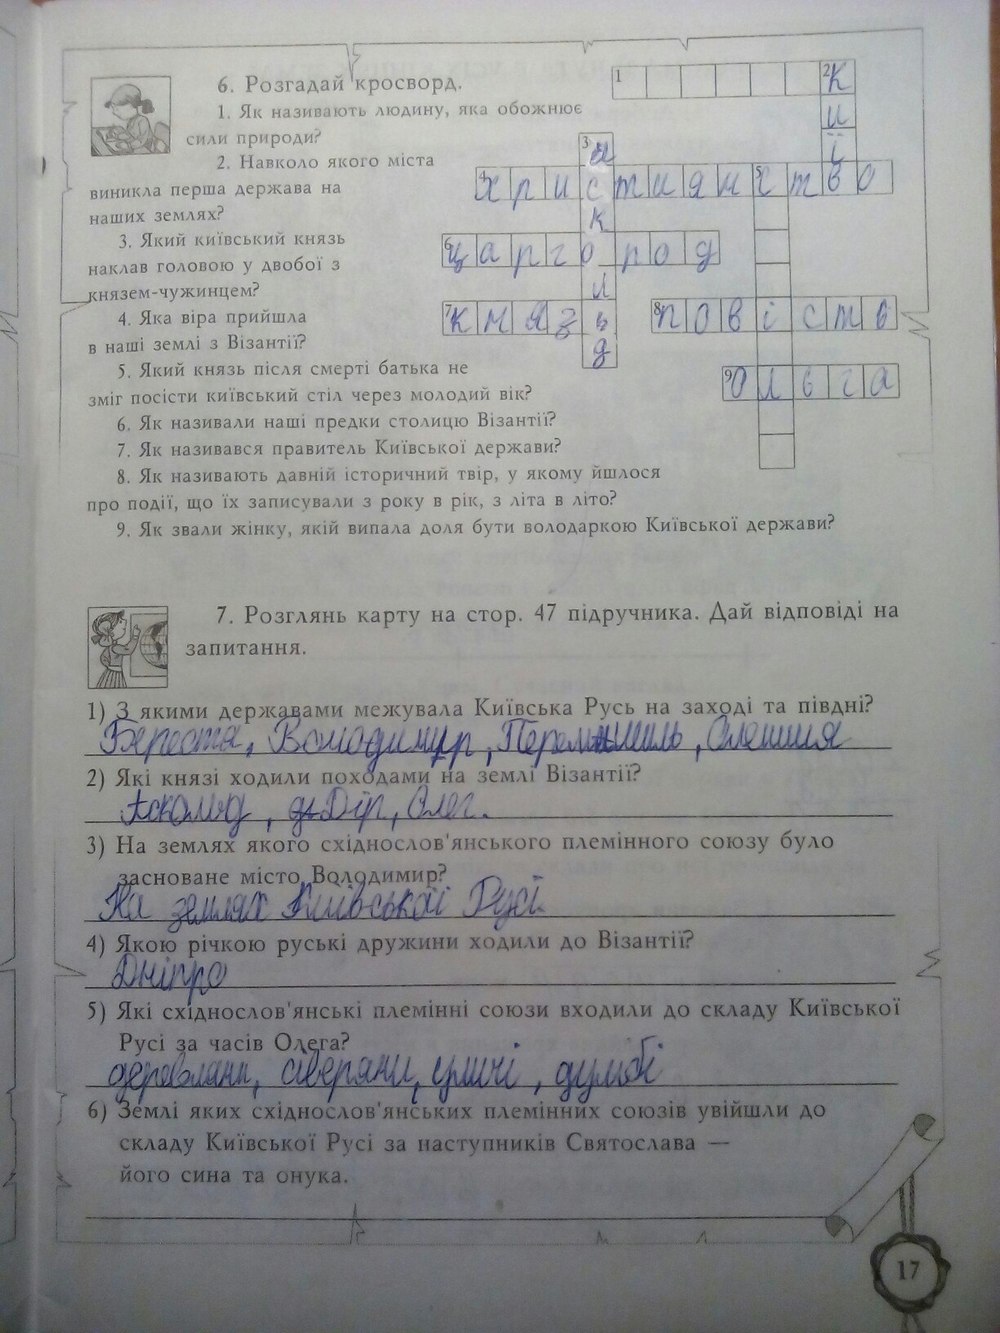 6. Розгадай кросворд.
1. Як називають людину, яка обожнює
сили природи?
2. Навколо якого міста
виникла перша держава на
наших землях?
3. Який київський князь
наклав головою у двобої з
князем-чужинцем?
4. Яка віра прийшла
в наші землі з Візантії?
5. Який князь після смерті батька не
зміг посісти київський стіл через молодий вік?
6. Як називали наші предки столицю Візантії?
7. Як називався правитель Київської держави?
8. Як називають давній історичний твір, у якому йшлося
про події, що їх записували з року в рік, з літа в літо?
9. Як звали жінку, якій випала доля бути володаркою Київської держави?
1 2 К
и
3 ї
4 християнство 5
к
6 царгород
л
7 княз ь 8 повість
д
9 Ольга
7. Розглянь карту на стор. 47 підручника. Дай відповіді на
запитання.
1) З якими державами межувала Київська Русь на заході та півдні?
Берестя, Володимир, Перемишль, Олешшя
2) Які князі ходили походами на землі Візантії?
Аскольд, Дір, Олег.
3) На землях якого східнослов'янського племінного союзу було
засноване місто Володимир?
На землях Київської Русі
4) Якою річкою руські дружини ходили до Візантії?
Дніпро
5) Які східнослов'янські племінні союзи входили до складу Київської
Русі за часів Олега?
деревляни, сіверяни, уличі, дулібі
6) Землі яких східнослов'янських племінних союзів увійшли до
складу Київської Русі за наступників Святослава —
його сина та онука.
17